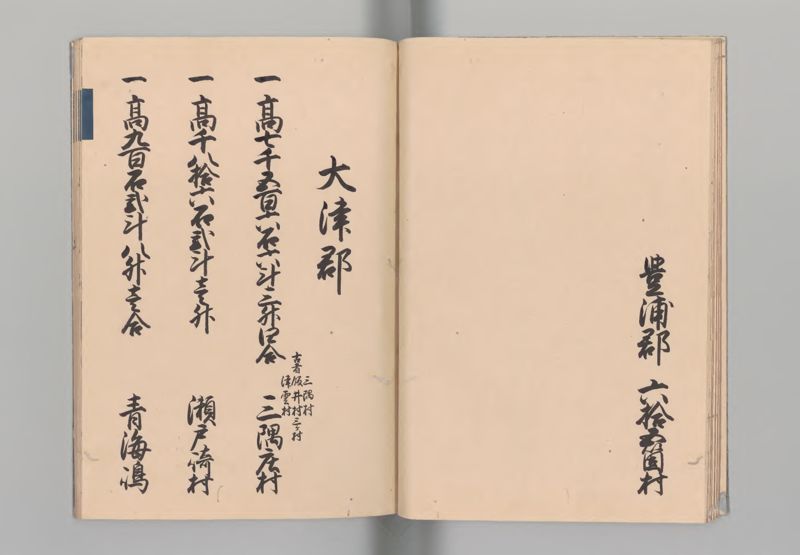 豊浦郡 六拾五箇村
大津郡
一 高七千五百六石六斗三升四合
古者 三隅村
飯井村三ヶ村
津雲村
三隅庄村
一 高千八拾六石弐斗壱升 瀬戸崎村
一 高九百石弐斗八升壱合 青海嶋